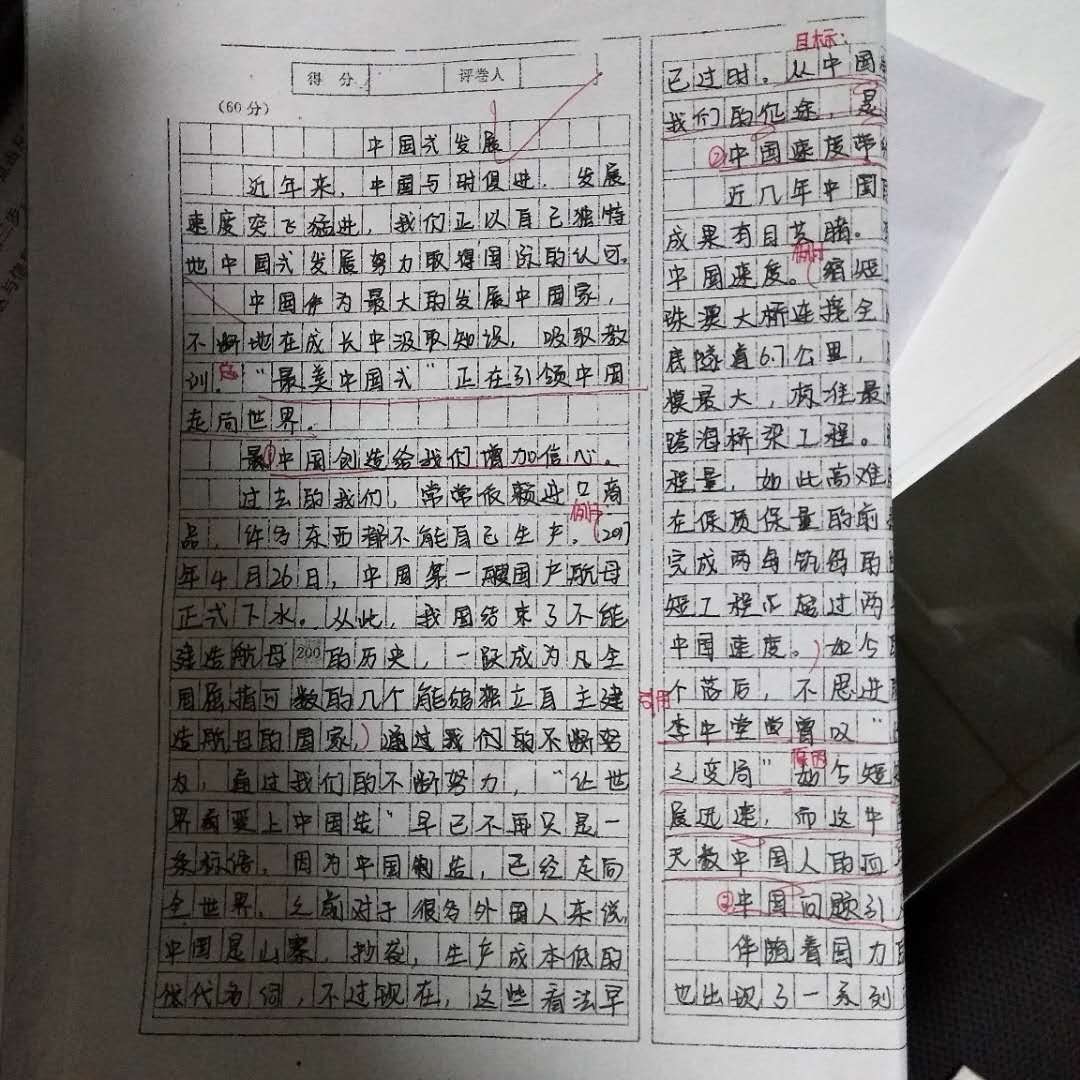 得 分
评卷人
(60分)
中国式发展
近年来，中国与时俱进，发展
速度突飞猛进，我们正以自己独特
地中国式发展努力取得国际的认可。
中国作为最大的发展中国家，
不断地在成长中汲取知识，吸取教
训。"最美中国式"正在引领中国
走向世界。
①中国创造给我们增加信心。
过去的我们，常常依赖进口商
品，许多东西都不能自己生产。(2017
例
年4月26日，中国第一艘国产航母
正式下水。从此，我国结束了不能
建造航母200的历史，一跃成为凡全
国屈指可数的几个能够独立自主建
造航母的国家。)通过我们的不断努
力，通过我们的不断努力，"让世
界爱上中国造"早已不再只是一
条标语，因为中国制造，已经走向
全世界，之前对于很多外国人来说，
中国是山寨，抄袭，生产成本低的
代名词，不过现在，这些看法早
目标：
已过时。从中国
我们的征途，是
②中国速度带
近几年中国
成果有目共睹。
例
中国速度。(缩短
珠澳大桥连接全
底隧道6.7公里，
模最大，标准最
跨海桥梁工程。
程量，如此高难
在保质保量的前
完成两岛筑岛的
短工程
超过两
中国速度。)如今
个落后，不思进
引用
李中堂曾叹"
原因
之变局"如今短
展迅速，而这中
无数中国人的
③中国问题引
伴随着国力
也出现了一系列